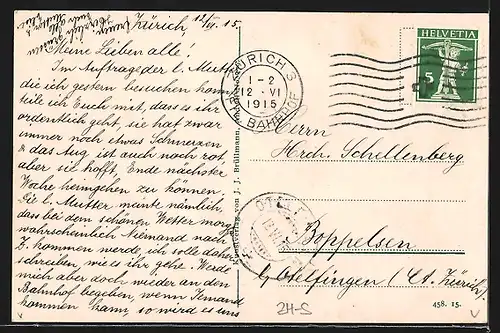 Zürich, 12/VI. 15.
Meine Lieben alle!
Im Auftrage der l. Mutter
die ich gestern besuchen kam,
teile ich Euch mit, dass es ihr
ordentlich geht, sie hat zwar
immer noch etwas Schmerzen
& das Aug ist auch noch rot,
aber sie hofft Ende nächster
Woche heimgehen zu können.
Die l. Mutter meinte nämlich,
dass bei dem schönen Wetter morg.
wahrscheinlich Niemand nach
Z. kommen werde, ich solle daher
schreiben, wie es ihr gehe. Werde
mich aber doch wieder an den
Bahnhof begeben, wenn Jemand
kommen kann, so wird es uns
HELVETIA
5
ZÜRICH
1-2
12·VI
1915
BAHNHOF
Herrn
Hrch. Schellenberg
Boppelsen
b/ Otelfingen (Ct. Zürich).
v. J. J. Brüllmann,
24-S
458. 15.